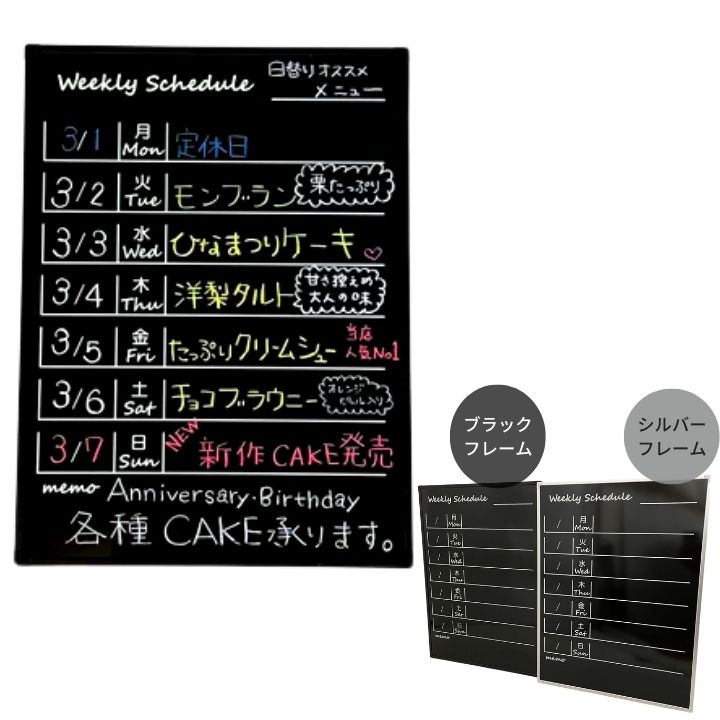 Weekly Schedule
日替りオススメ
メニュー
3/1 月 Mon 定休日
3/2 火 Tue モンブラン 栗たっぷり
3/3 水 Wed ひなまつりケーキ♡
3/4 木 Thu 洋梨タルト 甘さ控えめ 大人の味
3/5 金 Fri たっぷりクリームシュー 当店 人気No1
3/6 土 Sat チョコブラウニー オレンジピール入り
3/7 日 Sun NEW 新作CAKE発売
memo Anniversary・Birthday
各種CAKE承ります。
ブラック
フレーム
シルバー
フレーム
Weekly Schedule
/ 月 Mon
/ 火 Tue
/ 水 Wed
/ 木 Thu
/ 金 Fri
/ 土 Sat
/ 日 Sun
memo
Weekly Schedule
/ 月 Mon
/ 火 Tue
/ 水 Wed
/ 木 Thu
/ 金 Fri
/ 土 Sat
/ 日 Sun
memo